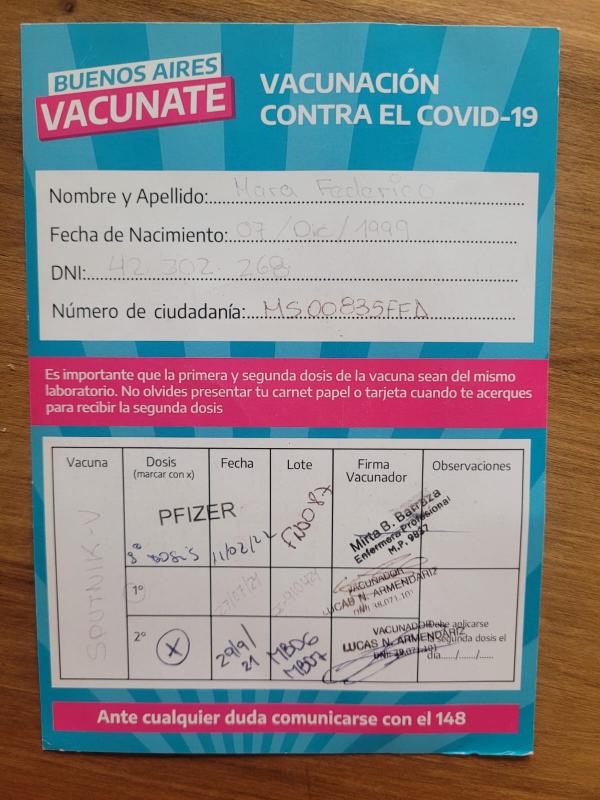 BUENOS AIRES
VACUNATE
VACUNACIÓN
CONTRA EL COVID-19
Nombre y Apellido: Mara Federico
Fecha de Nacimiento: 07/Dic/1999
DNI: 42 302 268
Número de ciudadanía:
Es importante que la primera y segunda dosis de la vacuna sean del mismo
laboratorio. No olvides presentar tu carnet papel o tarjeta cuando te acerques
para recibir la segunda dosis
Vacuna Dosis (marcar con x) Fecha Lote Firma Vacunador Observaciones
SPUTNIK-V
PFIZER
3ª DOSIS 11/02/22 FN0087
Mirta B. Barraza
Enfermera Profesional
M.P. 9837
1º 27/07/21
VACUNADOR
LUCAS N. ARMENDARIZ
2º X 29/9/21 MB06 MB07
VACUNADOR
LUCAS N. ARMENDARIZ
Debe aplicarse
segunda dosis el
día....../....../......
Ante cualquier duda comunicarse con el 148